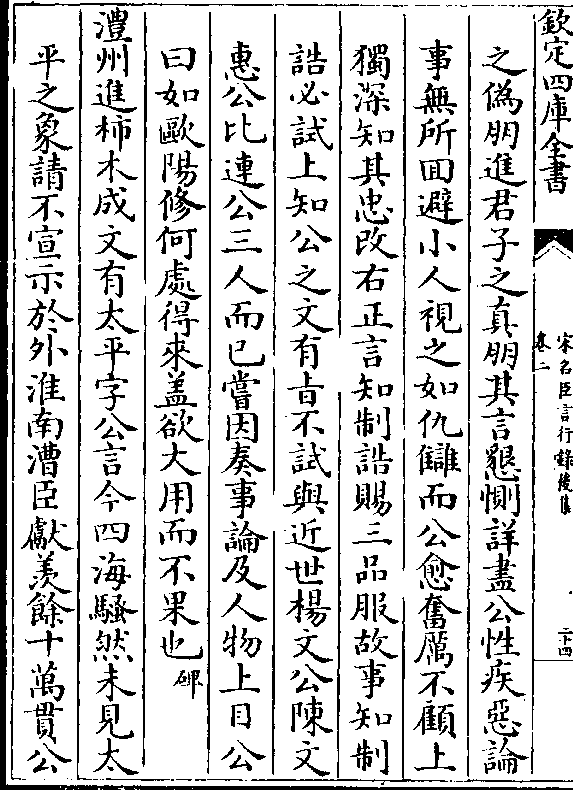 欽定四庫全書
宋名臣言行録後集
卷二
二十四
之偽朋進君子之真朋其言懇惻詳盡公性疾惡論
事無所回避小人視之如仇讎而公愈奮厲不顧上
獨深知其忠改右正言知制誥賜三品服故事知制
誥必試上知公之文有㫖不試與近世楊文公陳文
惠公比連公三人而已嘗因奏事論及人物上目公
曰如歐陽修何處得來盖欲大用而不果也碑
澧州進柿木成文有太平字公言今四海騷然未見太
平之象請不宣示於外淮南漕臣獻羡餘十萬貫公